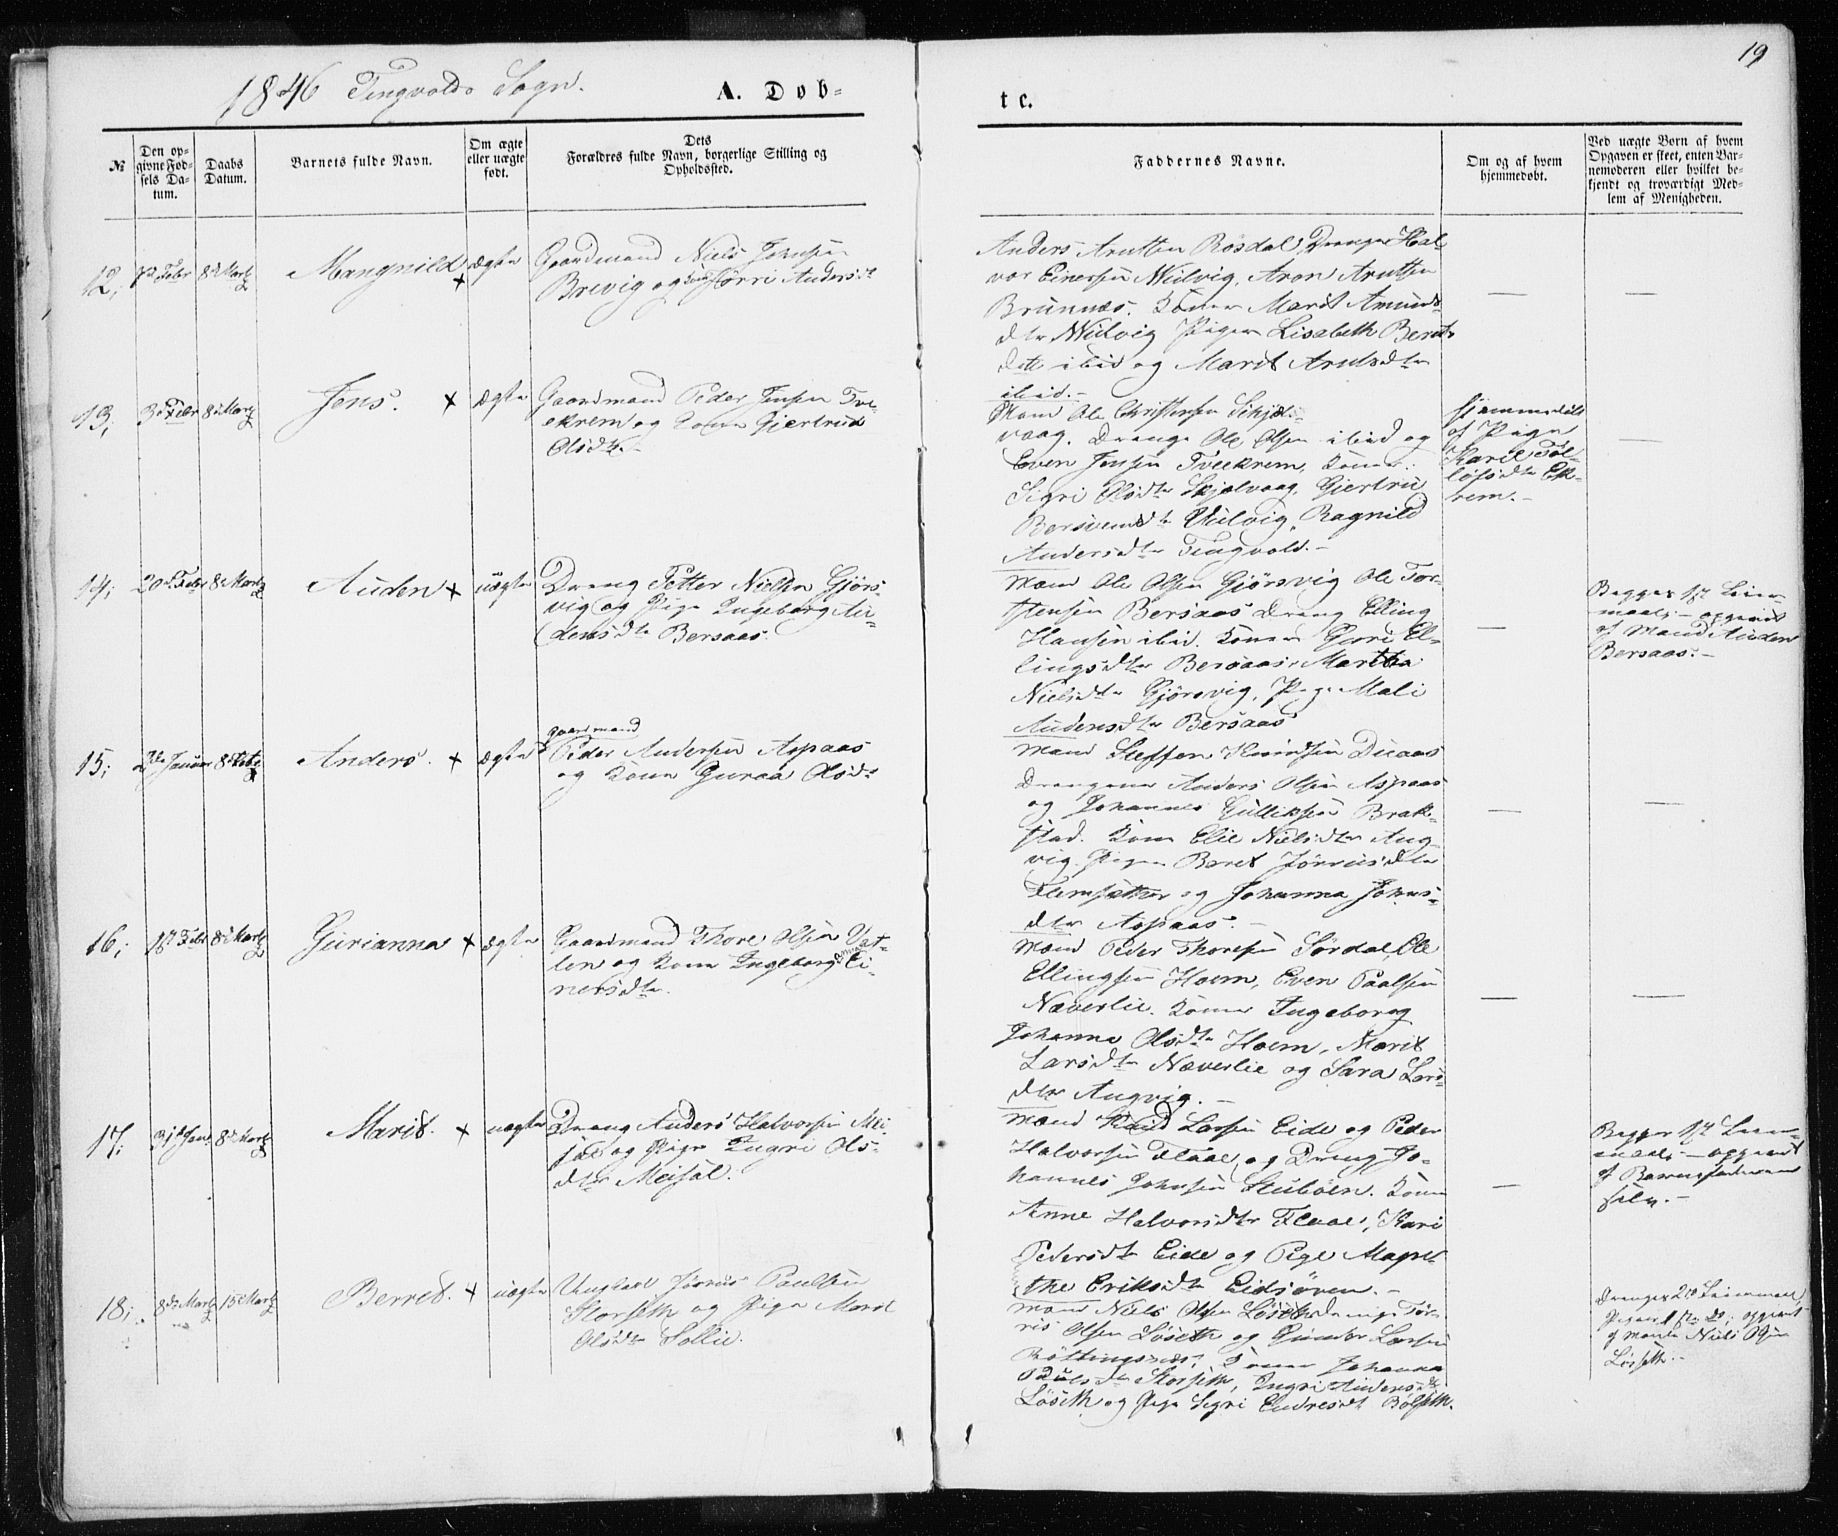 19
1846 Tingvolds Sogn.
A. Døb-
te.
№
Den op-
givne Fød-
sels Da-
tum.
Daabs
Datum.
Barnets fulde Navn.
Om ægte
eller uægte
født.
Dets
Forældres fulde Navn, borgerlige Stilling og
Opholdssted.
Faddernes Navne.
Om og af hvem
hjemmedøbt.
Ved uægte Børn af hvem
Opgaven er skeet, enten Bar-
nemoderen eller hvilket be-
kjendt og troværdigt Med-
lem af Menigheden.
12;
Febr
8d Martz
Mangnild
ægte
Gaardmand Niels Johnsen
Brevig og Kone Jørri Andersdt
Anders Arntsen Røsdal, Drenge Hal
vor Einersen Wulvig, Aron Arntsen
Brunnæs. Koner Marit Amunds
dtr Wulvig Piger Lisabeth Berntz
dtt ibid og Marit Arntsdtr
ibid.-
13;
3d Febr
8d Martz
Jens.
ægte
Gaardmand Peder Jensen Tve-
ekrem og Kone Gjertrud
Olsdtr.
Mand Ole Christensen Skjøl-
vaag. Drenge Ole Olsen ibid og
Even Jensen Tveekrem, Koner:
Sigri Olsdtr Skjølvaag, Gjertru
Bersvendtr Wulvig, Ragnild
Andersdtr Tingvold.-
hjemmedøbt
af Pige
Karil Tøl-
løfsdtr Ek-
rem.-
14;
20d Febr
8d Martz
Auden
uægte
Dreng Petter Nielsen Gjørs-
vig og Pige Ingeborg Au-
densdtr Bersaas.
Mand Ole Olsen Gjørsvig Ole Tor-
stensen Bersaas Dreng Elling
Hansen ibid. Koner Guri El-
lingsdtr Bersaas, Martha
Nielsdtr Gjørsvig, Pige Mali
Audensdtr Bersaas
Begges 1ste Leier-
maal; - opgivet
af Mand Auden
Bersaas.-
15;
Januar
8d Febr
Anders.
ægte
gaardmand
Peder Andersen Aspaas
og Kone Guraa Olsdt
Mand Steffen Knudsen Duaas
Drengene Anders Olsen Aspaas
og Johannes Gulliksen Brak-
stad. Kone Elie Nielsdtr Ang-
vig. Piger Beret Jørrisdtr
Flemsæther og Johanna Johns-
dtr Aspaas.-
16;
18d Febr
8d Martz
Gurianna
ægte
Gaardmand Thore Olsen Vat-
ten og Kone Ingeborg Ei-
nersdtr.
Mand Peder Thoresen Sørdal, Ole
Ellingsen Hoem, Even Paalsen
Næverlie. Koner Ingeborg
Johanna Olsdtr Hoem, Marit
Larsdtr Næverlie og Sara Lars-
dtr Angvig.-
17;
31d Jan
8d Martz
Marit.
uægte
Dreng Anders Halvorsen Mei-
sal og Pige Ingri Ols-
dtr Meisal.
Mand Knud Larsen Eide og Peder
Halvorsen Flaae, og Dreng Jo-
hannes Johnsen Stubøen. Koner
Anne Halvorsdtr Flaae, Kari
Pedersdtr Eide og Pige Magre
the Eriksdtr Eidsøren.-
Begges 1ste Leier-
maal; - opgivet
af Barnefaderen
selv.-
18;
8d Martz
15 Martz
Berret.
uægte
Ungkarl Jørris Paulsen
Storseth og Pige Marit
Olsdtr Sollie.
Mand Niels Olsen Løseth Drenge Tør-
ris Olsen Løseth og Gunder Larsen
Bøttingsnæs, Koner Johanna
Paulsdtr Storseth, Ingri Andersdtr
Løseth og Pige Sigri Endresdt Bølseth.
Drenges 2det Leiermaal
Piges 1ste do; opgivet
af Mand Niels Olsen
Løseth.-